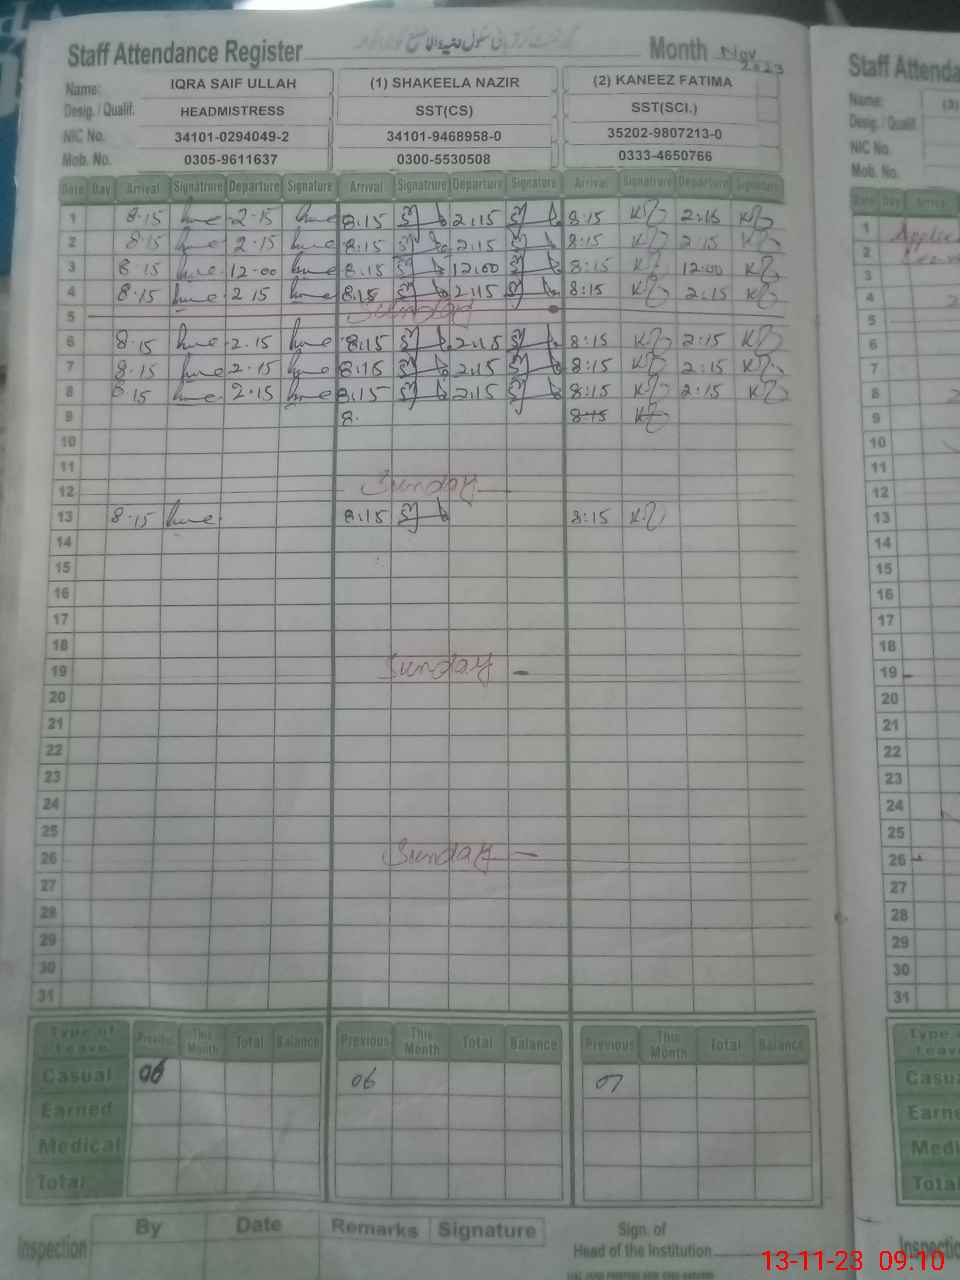 Staff Attendance Register Month Nov 2023
Name: IQRA SAIF ULLAH (1) SHAKEELA NAZIR (2) KANEEZ FATIMA
Desig. / Qualif. HEADMISTRESS SST(CS) SST(SCI.)
NIC No. 34101-0294049-2 34101-9468958-0 35202-9807213-0
Mob. No. 0305-9611637 0300-5530508 0333-4650766
Date Day Arrival Signatrure Departure Signature Arrival Signatrure Departure Signature Arrival Signatrure Departure Signature
1 8.15 2.15 8.15 2.15 8:15 2:15
2 8.15 2.15 8.15 2.15 8:15 2:15
3 8.15 12.00 8.15 12.00 8:15 12.00
4 8.15 2.15 8.15 2.15 8:15 2:15
5 Sunday
6 8.15 2.15 8.15 2.15 8:15 2:15
7 8.15 2.15 8.15 2.15 8:15 2:15
8 8.15 2.15 8.15 2.15 8:15 2:15
9 8. 8:15
10
11
12 Sunday
13 8.15 8.15 8:15
14
15
16
17
18
19 Sunday
20
21
22
23
24
25
26 Sunday
27
28
29
30
31
Type of Leave Previous This Month Total Balance Previous This Month Total Balance Previous This Month Total Balance
Casual 06 06 07
Earned
Medical
Total
Inspection By Date Remarks Signature Sign. of Head of the Institution
Staff Attenda
Name: (3)
Desig. / Qualif.
NIC No.
Mob. No.
Date Day Arrival
1
2
3
4
5
6
7
8
9
10
11
12
13
14
15
16
17
18
19
20
21
22
23
24
25
26
27
28
29
30
31
Type o
Leave
Casu
Earne
Medi
Total
Inspectio
13-11-23 09:10